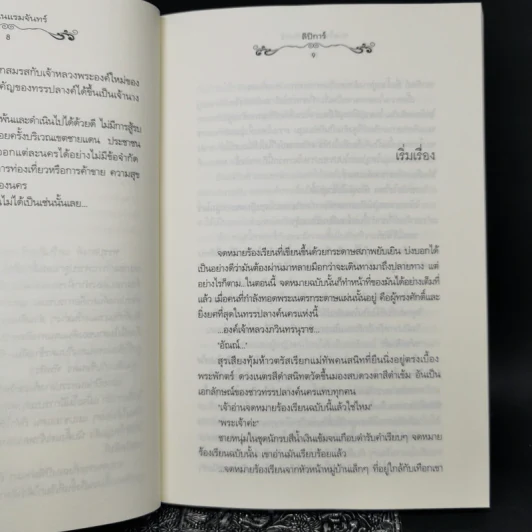 นแรมจันทร์
8
กสมรสกับเจ้าหลวงพระองค์ใหม่ของ
คัญของทรรปลางค์ได้ขึ้นเป็นเจ้านาง
พันและดำเนินไปได้ด้วยดี ไม่มีการสู้รบ
อยครั้งบริเวณเขตชายแดน ประชาชน
ออกแต่ละนครได้อย่างไม่มีข้อจำกัด
การท่องเที่ยวหรือการค้าขาย ความสุข
องนคร
นไม่ได้เป็นเช่นนั้นเลย...
ตปิการ์
9
เริ่มเรื่อง
จดหมายร้องเรียนที่เขียนขึ้นด้วยกระดาษสภาพยับเยิน บ่งบอกได้
เป็นอย่างดีว่ามันต้องผ่านมาหลายมือกว่าจะเดินทางมาถึงปลายทาง แต่
อย่างไรก็ตาม...ในตอนนี้ จดหมายฉบับนั้นก็ทำหน้าที่ของมันได้อย่างเต็มที่
แล้ว เมื่อคนที่กำลังทอดพระเนตรกระดาษแผ่นนั้นอยู่ คือผู้ทรงศักดิ์และ
ยิ่งยศที่สุดในทรรปลางค์นครแห่งนี้
...องค์เจ้าหลวงภวินทรนุราช...
'อัณณ์...'
สุรเสียงทุ้มห้าวตรัสเรียกแม่ทัพคนสนิทที่ยืนนิ่งอยู่ตรงเบื้อง
พระพักตร์ ดวงเนตรสีดำสนิทตวัดขึ้นมองสบดวงตาสีดำเข้ม อันเป็น
เอกลักษณ์ของชาวทรรปลางค์นครแทบทุกคน
'เจ้าอ่านจดหมายร้องเรียนฉบับนี้แล้วใช่ไหม'
'พระเจ้าค่ะ'
ชายหนุ่มในชุดนักรบสีน้ำเงินเข้มจนเกือบดำรับคำเรียบๆ จดหมาย
ร้องเรียนฉบับนั้น เขาอ่านมันเรียบร้อยแล้ว
...จดหมายร้องเรียนจากหัวหน้าหมู่บ้านเล็กๆ ที่อยู่ใกล้กับเทือกเขา